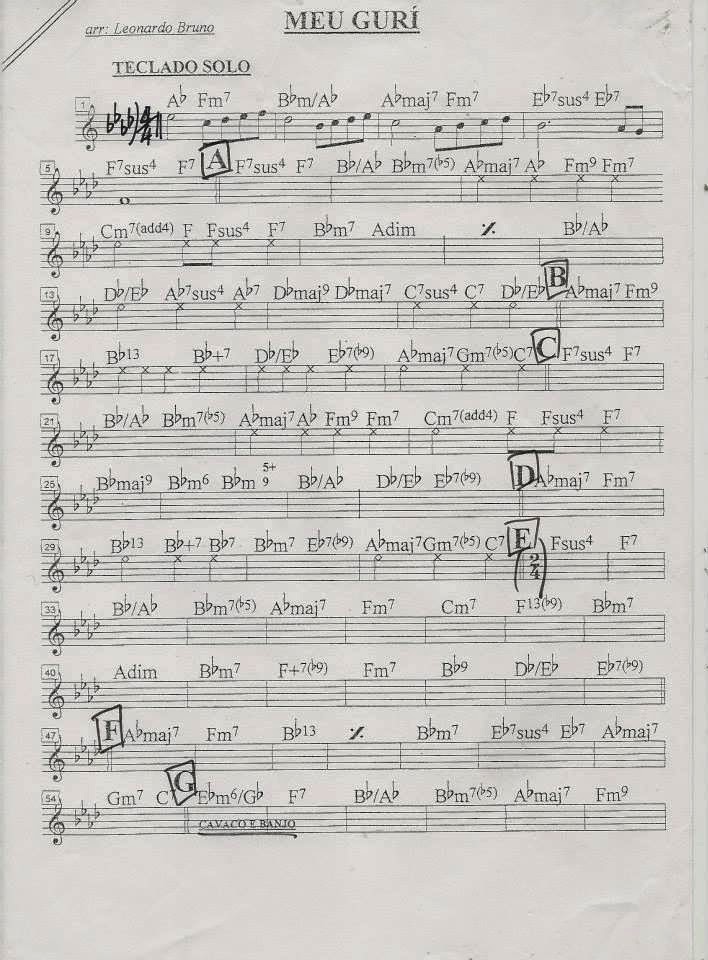 MEU GURÍ
arr: Leonardo Bruno
TECLADO SOLO
A♭ Fm7 B♭m/A♭ A♭maj7 Fm7 E♭7sus4 E♭7
1 4/4
F7sus4 F7 A F7sus4 F7 B♭/A♭ B♭m7(♭5) A♭maj7 A♭ Fm9 Fm7
5
Cm7(add4) F Fsus4 F7 B♭m7 Adim 𝄎 B♭/A♭
9
D♭/E♭ A♭7sus4 A♭7 D♭maj9 D♭maj7 C7sus4 C7 D♭/E♭ B A♭maj7 Fm9
13
B♭13 B♭+7 D♭/E♭ E♭7(♭9) A♭maj7 Gm7(♭5) C7 C F7sus4 F7
17
B♭/A♭ B♭m7(♭5) A♭maj7 A♭ Fm9 Fm7 Cm7(add4) F Fsus4 F7
21
B♭maj9 B♭m6 B♭m 5+ 9 B♭/A♭ D♭/E♭ E♭7(♭9) D A♭maj7 Fm7
25
B♭13 B♭+7 B♭7 B♭m7 E♭7(♭9) A♭maj7 Gm7(♭5) C7 E Fsus4 F7
29 (2/4)
B♭/A♭ B♭m7(♭5) A♭maj7 Fm7 Cm7 F13(♭9) B♭m7
33
Adim B♭m7 F+7(♭9) Fm7 B♭9 D♭/E♭ E♭7(♭9)
40
F A♭maj7 Fm7 B♭13 𝄎 B♭m7 E♭7sus4 E♭7 A♭maj7
47
Gm7 C7 G E♭m6/G♭ F7 B♭/A♭ B♭m7(♭5) A♭maj7 Fm9
54
CAVACO E BANJO